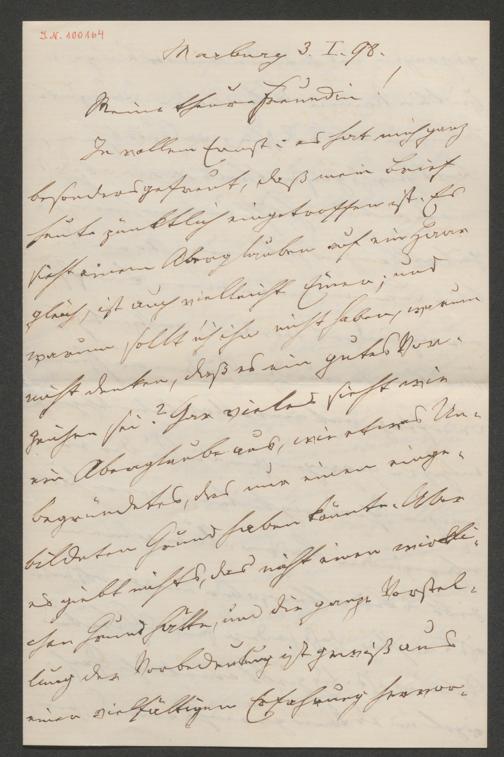 J.N. 100164
Marburg 3. I. 98.
Meine theure Freundin!
In vollem Ernst: es hat mich ganz
besonders gefreut, daß mein Brief
heute pünktlich eingetroffen ist. Es
sieht einem Aberglauben auf ein Haar
gleich, ist auch vielleicht Einer; und
warum sollt' ich ihn nicht haben, warum
nicht denken, daß es ein gutes Vor-
zeichen sei? Gar vieles sieht wie
ein Aberglaube aus, wie etwas Un-
begründetes, das nur einen einge-
bildeten Grund haben könnte. Aber
es giebt nichts, das nicht einen wirkli-
chen Grund hätte, und die ganze Vorstel-
lung der Vorbedeutung ist gewiß aus
einer vielfältigen Erfahrung hervor-